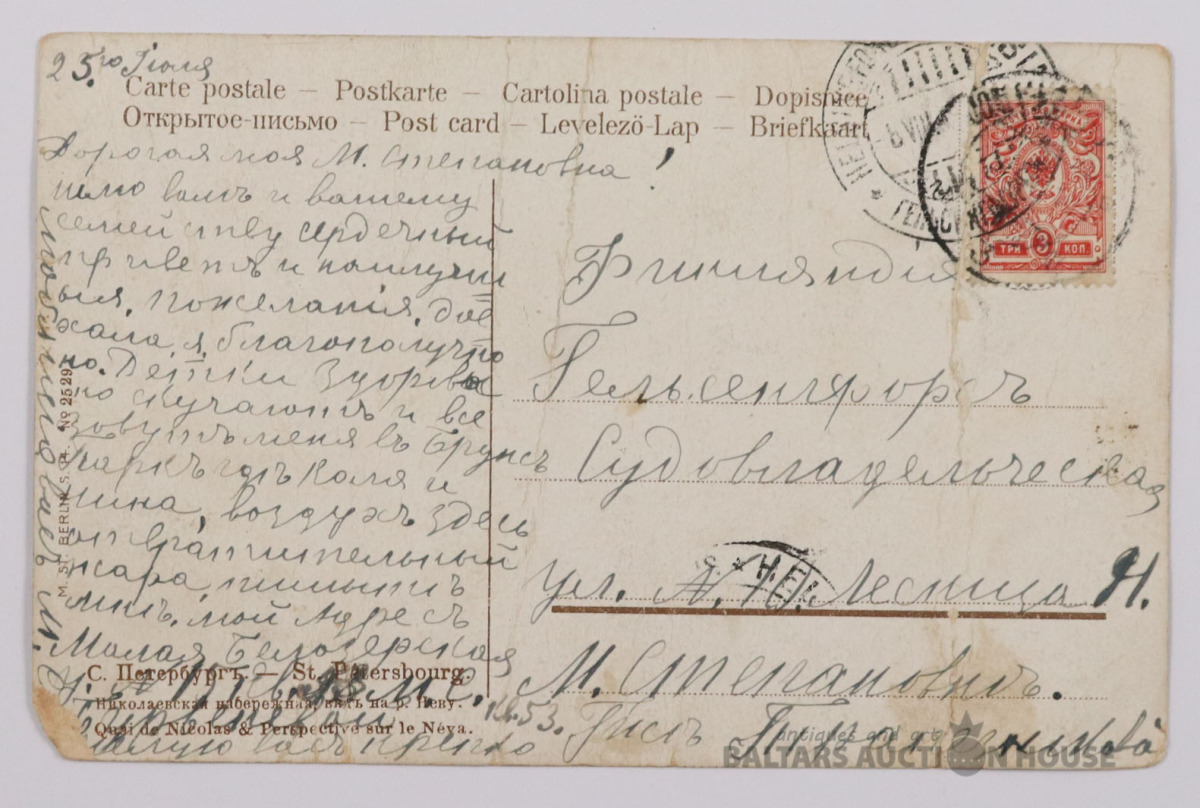 25го Іюля
Carte postale – Postkarte – Cartolina postale – Dopisnice
Открытое-письмо – Post card – Levelező-Lap – Briefkaart
Дорогая моя М. Степановна!
шлю вамъ и вашему
семейству сердечный
привѣтъ и наилучш
ыя пожеланія. дое
хала я благополучно
но. Дѣтки здоровы
но скучаютъ и все
зовутъ меня въ Брунсъ
паркъ гдѣ Коля и
Нина, воздухъ здесь
отвратительный
жара,
мнѣ. мой адресъ
Малая Белозерская
М. Е.
цѣлую васъ крепко
любящая васъ
М. St. BERLIN S. 14. No 2529
С. Петербургъ. – St. Pétersbourg.
Николаевская набережная, видъ на р. Неву.
Quai de Nicolas & Perspective sur le Néva.
кв. 53.
Финляндія
Гельсенгфорсъ
Судовладельческая
ул. Лесница Н.
М. Степановнѣ.
ТРИ 3 КОП.
HEL
antiques and art
BALTARS AUCTION HOUSE